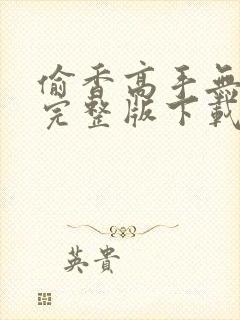 偷香高手無
完整版下載
英貴